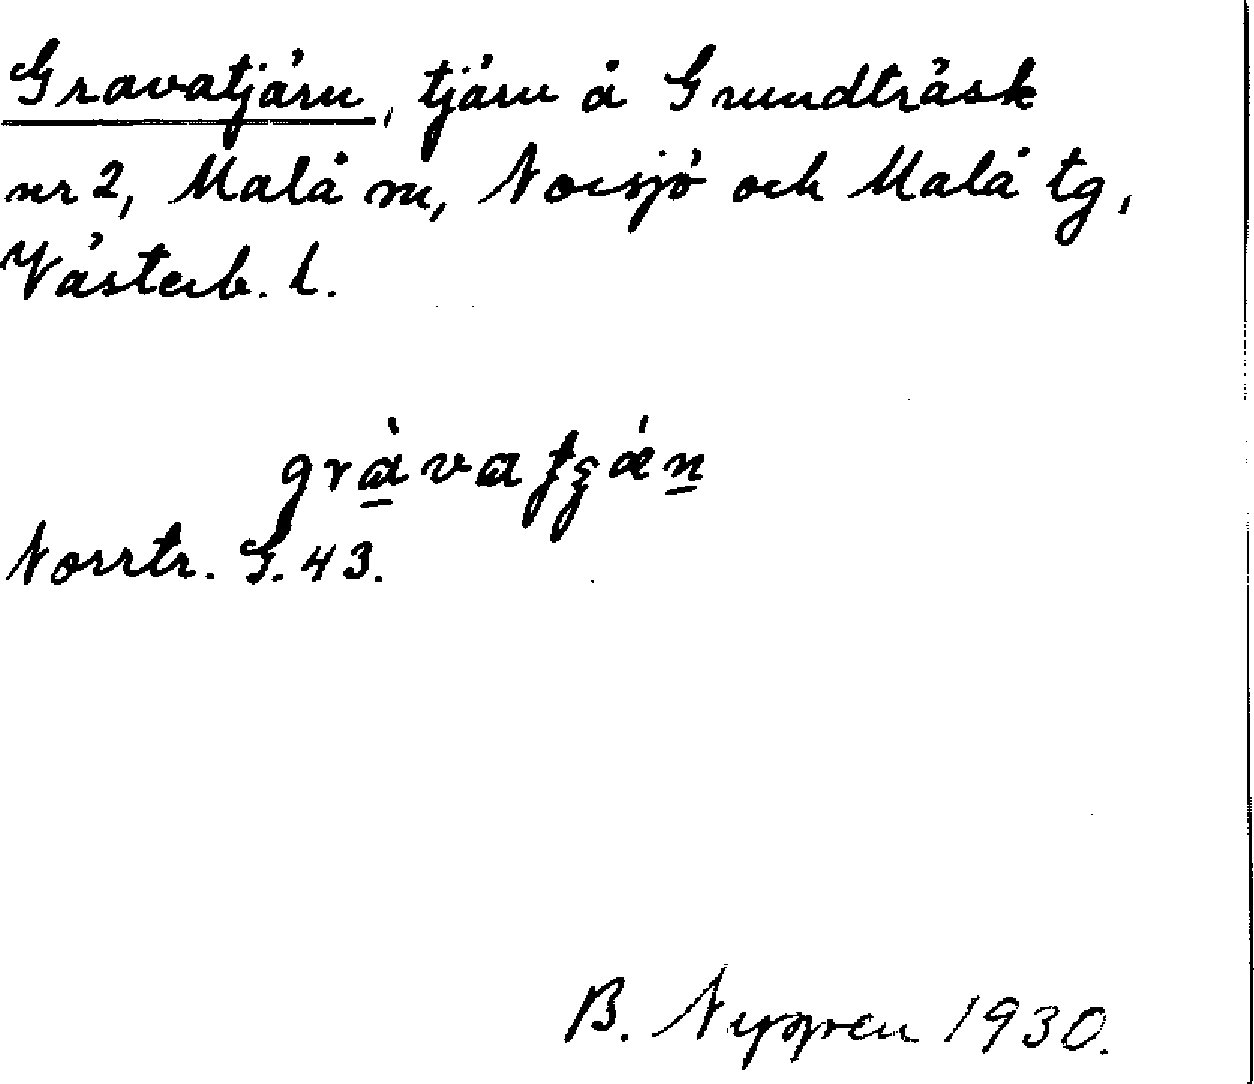 Gravatjärn, tjärn å Grundträsk
nr 2, Malå sn, Norsjö och Malå tg,
Västerb. l.
Norrtr. G. 43.
B. 1930.